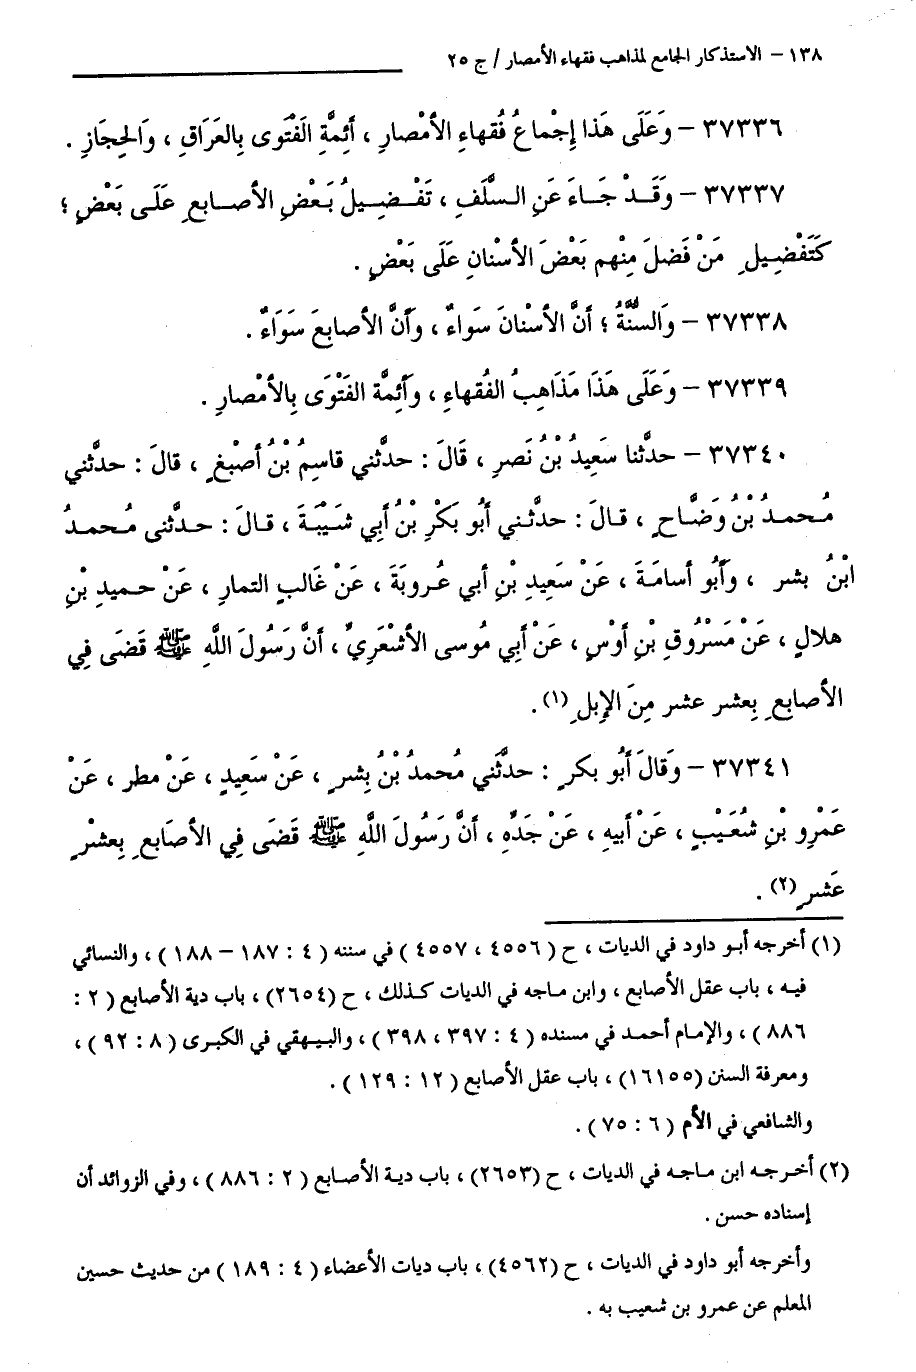 ١٣٨ – الاستذكار الجامع لمذاهب فقهاء الأمصار / ج ٢٥
٣٧٣٣٦ – وَعَلَى هَذا إِجْماعُ فُقهاءِ الأمْصارِ ، أئِمَّةِ الفَتْوى بِالعَرَاقِ ، وَالحِجَازِ .
٣٧٣٣٧ – وَقَدْ جَاءَ عَنِ السَّلَفِ ، تَفْضِيلُ بَعْضِ الأصابعِ عَلَى بَعْضٍ ؛
كَتَفْضِيلِ مَنْ فَضلَ مِنْهم بَعْضَ الأسْنانِ عَلَى بَعْضٍ .
٣٧٣٣٨ – وَالسُّنَّةُ ؛ أنَّ الأسْنانَ سَواءٌ ، وَأَنَّ الأصابعَ سَوَاءٌ .
٣٧٣٣٩ – وَعَلَى هَذَا مَذَاهِبُ الفُقهاءِ ، وَأَئِمَّة الفَتْوَى بِالأمْصارِ .
٣٧٣٤٠ – حدَّثنا سَعِيدُ بْنُ نَصرٍ ، قَالَ : حدَّثني قاسِمُ بْنُ أصبْغٍ ، قالَ : حدَّثني
مُحمدُ بْنُ وَضَّاحٍ ، قالَ : حدَّثني أبُو بَكْرِ بْنُ أبِي شَيْبَةَ ، قالَ : حدَّثنى مُحمدُ
ابْنُ بشر ، وَأَبُو أسامَةَ ، عَنْ سَعِيدِ بْنِ أبي عُروبَةَ ، عَنْ غَالبٍ التمارِ ، عَنْ حميدِ بْنِ
هلالٍ ، عَنْ مَسْرُوقِ بْنِ أوْسٍ ، عَنْ أبِي مُوسى الأشْعَرِيِّ ، أنَّ رَسُولَ اللَّهِ ﷺ قَضَى فِي
الأصابِعِ بِعشر عشر مِنَ الإبلِ (١) .
٣٧٣٤١ – وَقالَ أَبُو بكرٍ : حدَّثَني مُحمدُ بْنُ بِشرٍ ، عَنْ سَعِيدٍ ، عَنْ مطر ، عَنْ
عَمْرِو بْنِ شُعَيْبٍ ، عَنْ أبيهِ ، عَنْ جَدِّهِ ، أنَّ رَسُولَ اللَّهِ ﷺ قَضَى فِي الأصَابِعِ بِعشْرٍ
عَشرٍ (٢) .
(١) أخرجه أبو داود في الديات ، ح ( ٤٥٥٦ ، ٤٥٥٧ ) في سننه ( ٤ : ١٨٧ – ١٨٨ ) ، والنسائي
فيه ، باب عقل الأصابع ، وابن ماجه في الديات كذلك ، ح (٢٦٥٤) ، باب دية الأصابع ( ٢ :
٨٨٦ ) ، والإمام أحمد في مسنده ( ٤ : ٣٩٧ ، ٣٩٨ ) ، والبيهقي في الكبرى ( ٨ : ٩٢ ) ،
ومعرفة السنن (١٦١٥٥) ، باب عقل الأصابع ( ١٢ : ١٢٩ ) .
والشافعي في الأم ( ٦ : ٧٥ ) .
(٢) أخرجه ابن ماجه في الديات ، ح (٢٦٥٣) ، باب دية الأصابع ( ٢ : ٨٨٦ ) ، وفي الزوائد أن
إسناده حسن .
وأخرجه أبو داود في الديات ، ح (٤٥٦٢) ، باب ديات الأعضاء ( ٤ : ١٨٩ ) من حديث حسين
المعلم عن عمرو بن شعيب به .